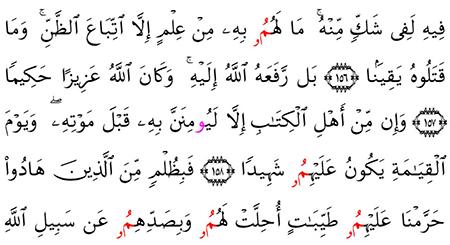 فِيهِ لَفِى شَكٍّ مِّنْهُ ۚ مَا لَهُمُۥ بِهِۦ مِنْ عِلْمٍ إِلَّا ٱتِّبَاعَ ٱلظَّنِّ ۚ وَمَا
قَتَلُوهُ يَقِينًۢا ﴿١٥٦﴾ بَل رَّفَعَهُ ٱللَّهُ إِلَيْهِ ۚ وَكَانَ ٱللَّهُ عَزِيزًا حَكِيمًا
﴿١٥٧﴾ وَإِن مِّنْ أَهْلِ ٱلْكِتَٰبِ إِلَّا لَيُومِنَنَّ بِهِۦ قَبْلَ مَوْتِهِۦ ۖ وَيَوْمَ
ٱلْقِيَٰمَةِ يَكُونُ عَلَيْهِمُۥ شَهِيدًا ﴿١٥٨﴾ فَبِظُلْمٍ مِّنَ ٱلَّذِينَ هَادُوا۟
حَرَّمْنَا عَلَيْهِمُۥ طَيِّبَٰتٍ أُحِلَّتْ لَهُمُۥ وَبِصَدِّهِمُۥ عَن سَبِيلِ ٱللَّهِ